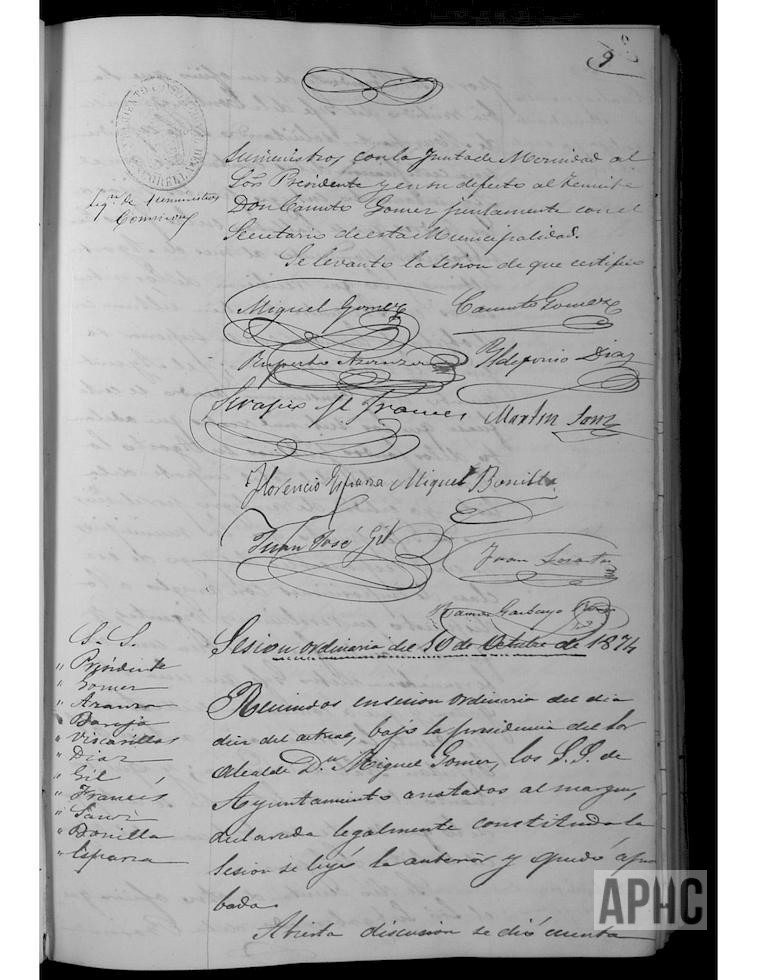 9
Suministros con la Junta de Merindad al
Sor. Presidente y en su defecto al Teniente
Don Canuto Gomez juntamente con el
Secretario de esta Municipalidad.
Se levanto la sesion de que certifico
de Suministros
Comision
Miguel Gomez Canuto Gomez
Ruperto Aranzo Yldefonso Diaz
Serapio Frances Martin Sanz
Florencio Esparza Miguel Bonilla
Juan José Gil
Juan
Ramon Garbayo
S. S.
" Presidente
" Gomez
" Aranzo
" Baroja
" Viscasillas
" Diaz
" Gil
" Francés
" Sanz
" Bonilla
" Esparza
Sesion ordinaria del 10 de Octubre de 1874
Reunidos en sesion ordinaria del dia
diez del actual, bajo la presidencia del Sor
Alcalde Dn. Miguel Gomez, los S.S. de
Ayuntamiento anotados al margen,
declarada legalmente constituida la
sesion se leyó la anterior y quedó apro
bada.
Abierta discusion se dió cuenta
APHC